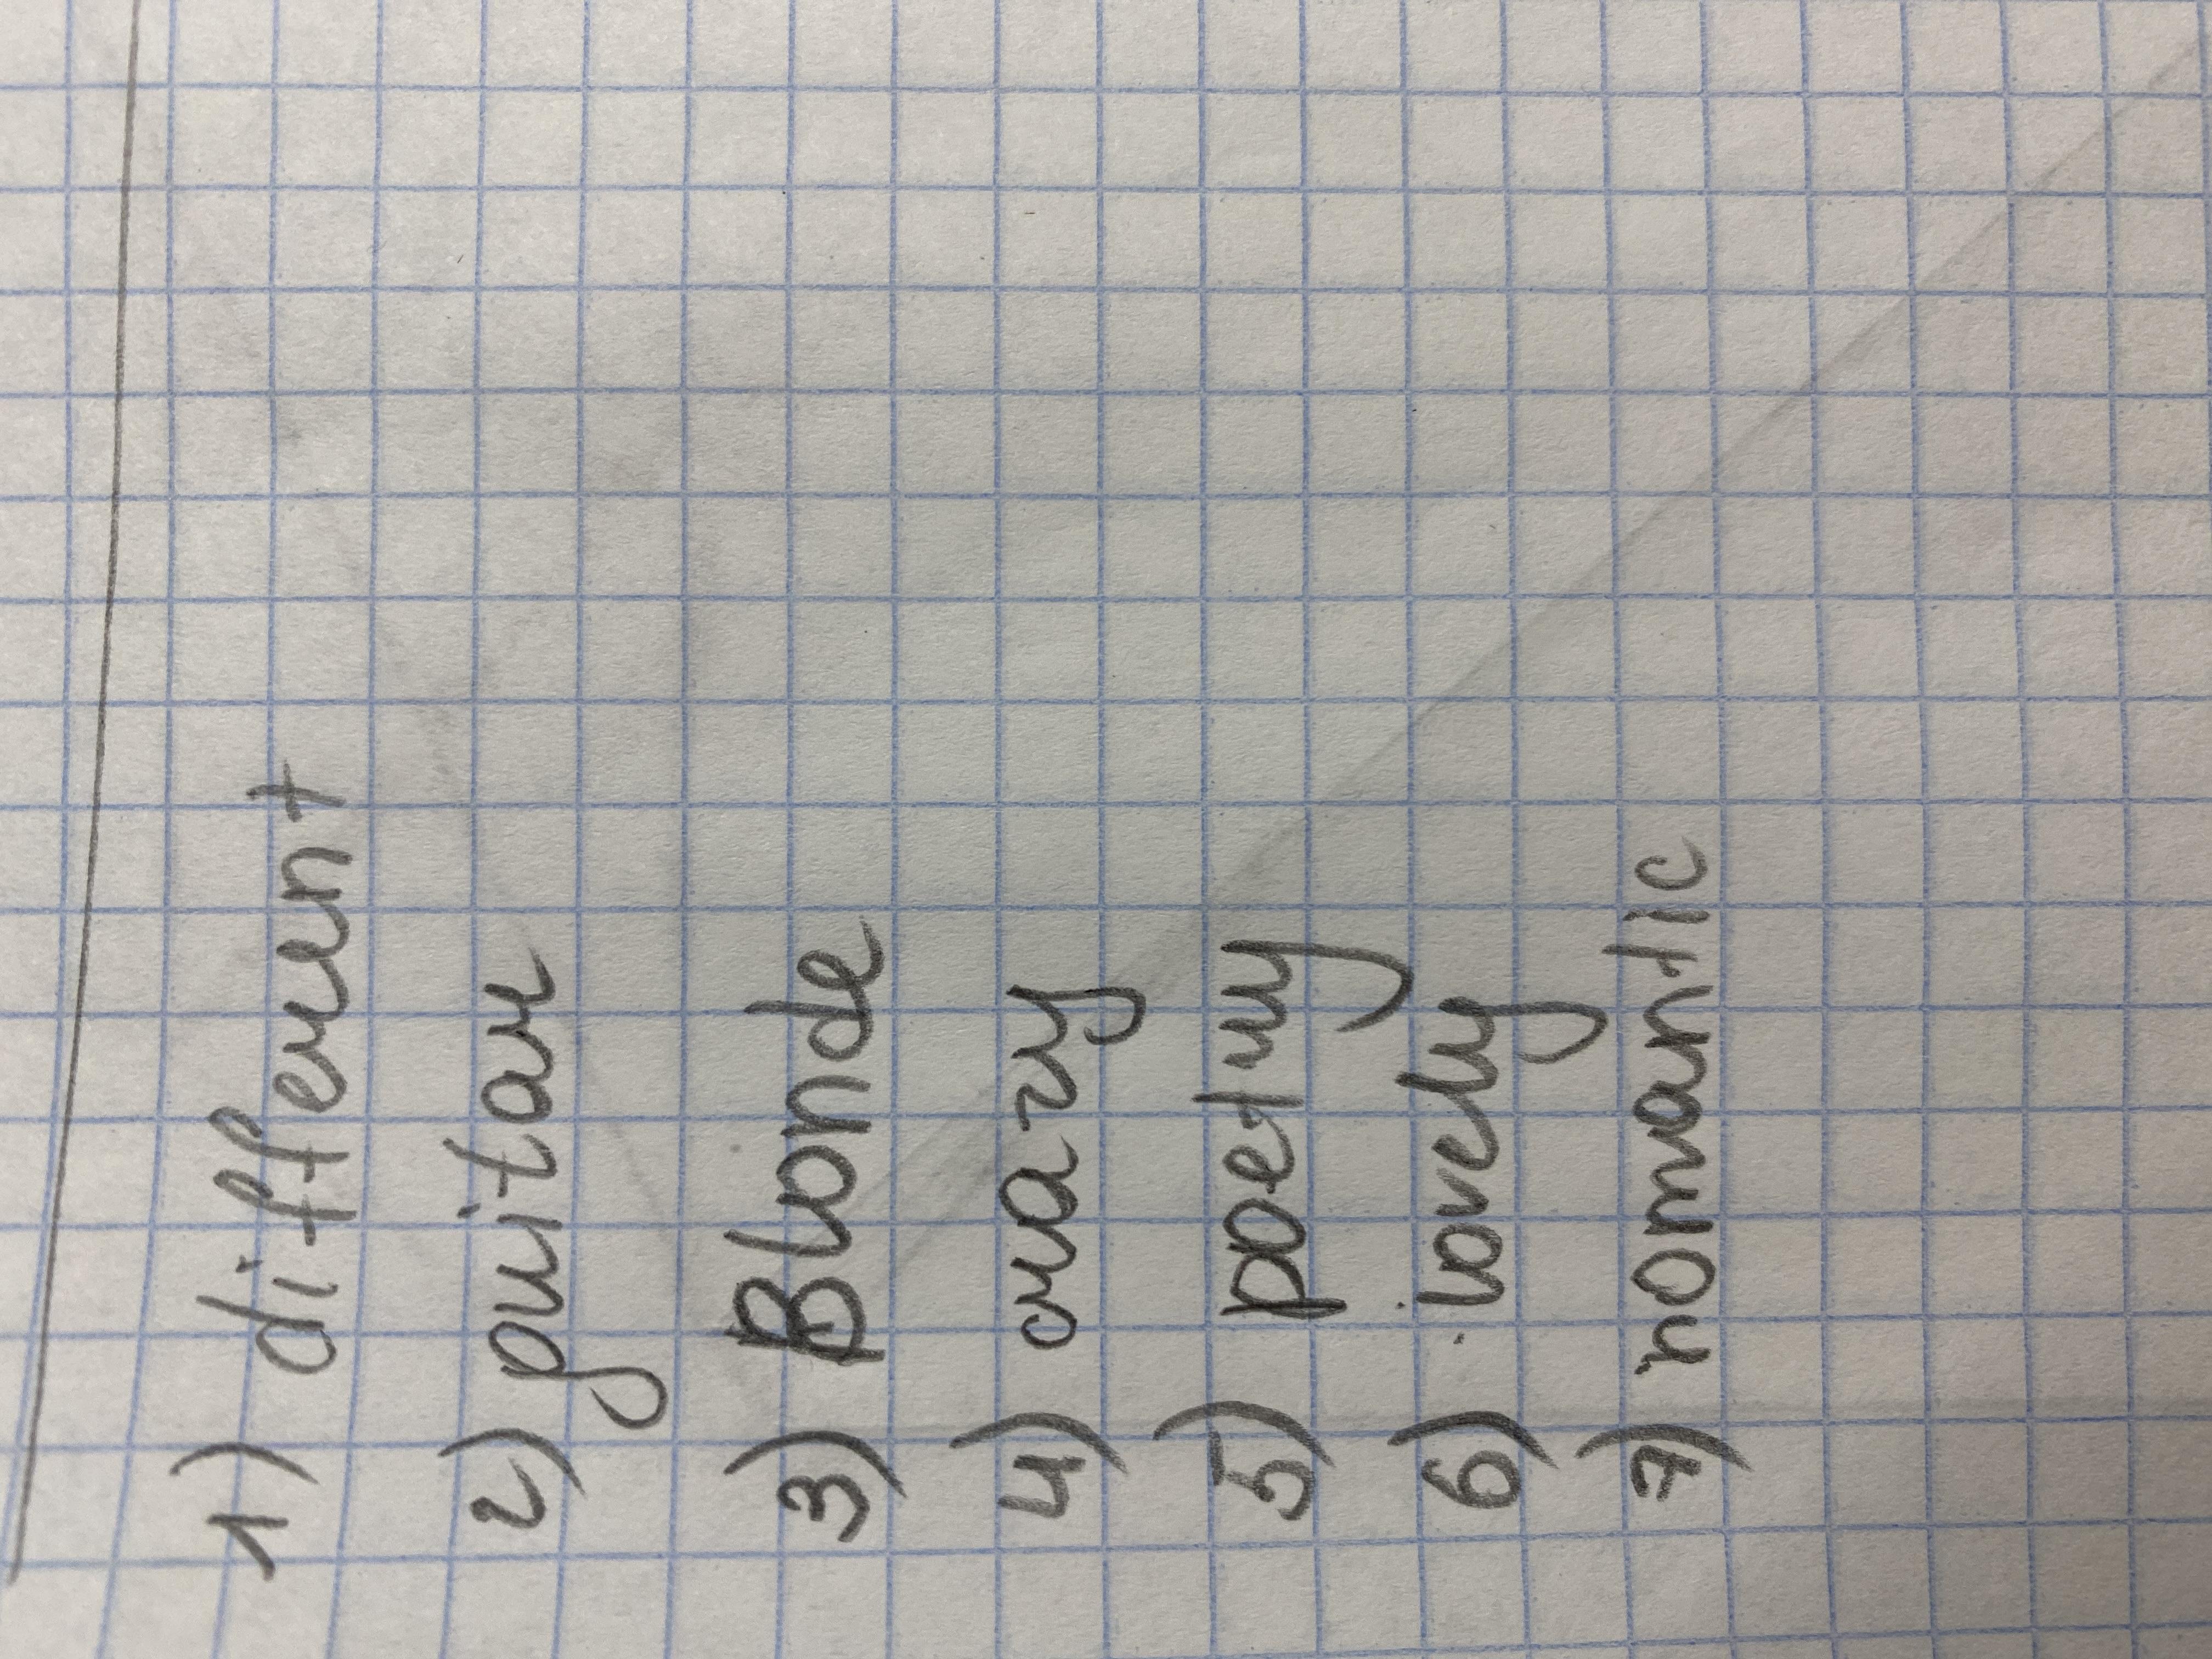 1) different
2) guitar
3) Blonde
4) crazy
5) poetry
6) lovely
7) romantic